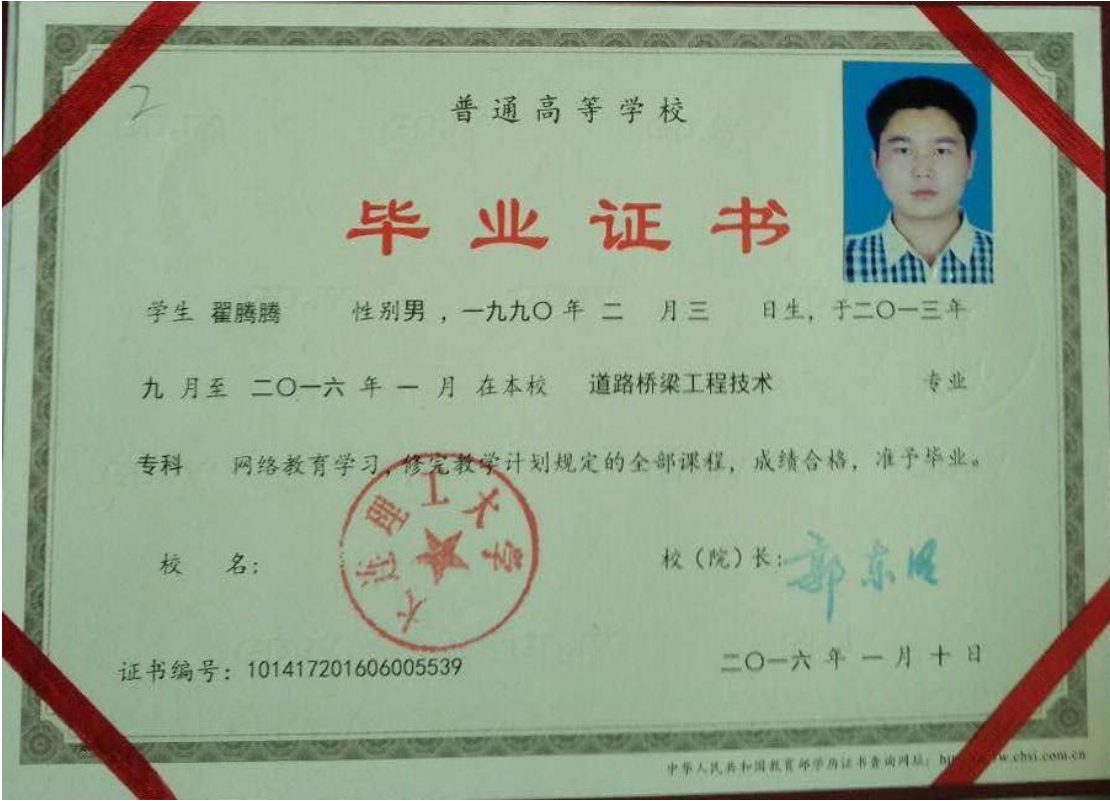 2
普通高等学校
毕业证书
学生 翟腾腾 性别男，一九九〇年 二 月三 日生，于二〇一三年
九 月至 二〇一六 年 一 月 在本校 道路桥梁工程技术 专业
专科 网络教育学习，修完教学计划规定的全部课程，成绩合格，准予毕业。
大连理工大学
校 名： 校（院）长：郭东明
证书编号：101417201606005539 二〇一六 年 一 月 十 日
中华人民共和国教育部学历证书查询网址： w.chsi.com.cn